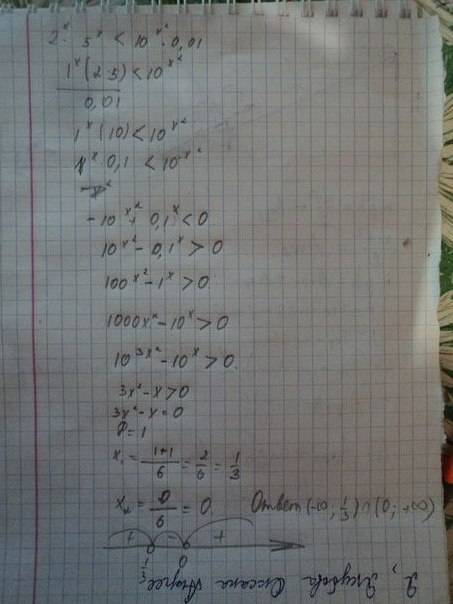 2ˣ · 5ˣ < 10ˣ² · 0,01
1ˣ(2·5) < 10ˣ²
0,01
1ˣ(10) < 10ˣ²
1ˣ 0,1 < 10ˣ²
-10ˣ² + 0,1ˣ < 0
10ˣ² - 0,1ˣ > 0
100ˣ² - 1ˣ > 0
1000ˣ² - 10ˣ > 0
10³ˣ² - 10ˣ > 0
3x² - x > 0
3x² - x = 0
D = 1
x₁ = 1+1 / 6 = 2/6 = 1/3
x₂ = 0/6 = 0 Ответ (-∞; 1/3) ∪ (0; +∞)
+ - +
1/3 0
Я, Оксана